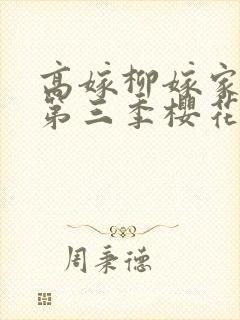 高嫁柳嫁家
第三季樱花
周秉德